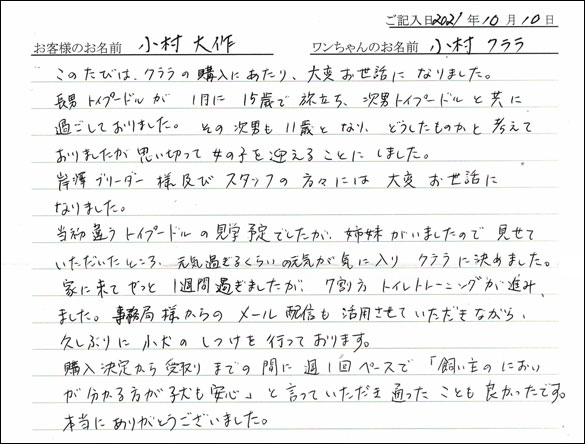 ご記入日 2021 年 10 月 10 日
お客様のお名前 小村 大作 ワンちゃんのお名前 小村 クララ
このたびは、クララの購入にあたり、大変お世話になりました。
長男トイプードルが 1月に 15歳で旅立ち、次男トイプードルと共に
過ごしておりました。その次男も11歳となり、どうしたものかと考えて
おりましたが思い切って女の子を迎えることにしました。
岸澤ブリーダー様及びスタッフの方々には大変お世話に
なりました。
当初違うトイプードルの見学予定でしたが、姉妹がいましたので見せて
いただいたところ、元気過ぎるくらいの元気が気に入りクララに決めました。
家に来てやっと1週間過ぎましたが、7割方トイレトレーニングが進み、
ました。事務局様からのメール配信も活用させていただきながら、
久しぶりに小犬のしつけを行っております。
購入決定から受取りまでの間に週1回ペースで「飼い主のにおい
が分かる方が子犬も安心」と言っていただき通ったことも良かったです。
本当にありがとうございました。